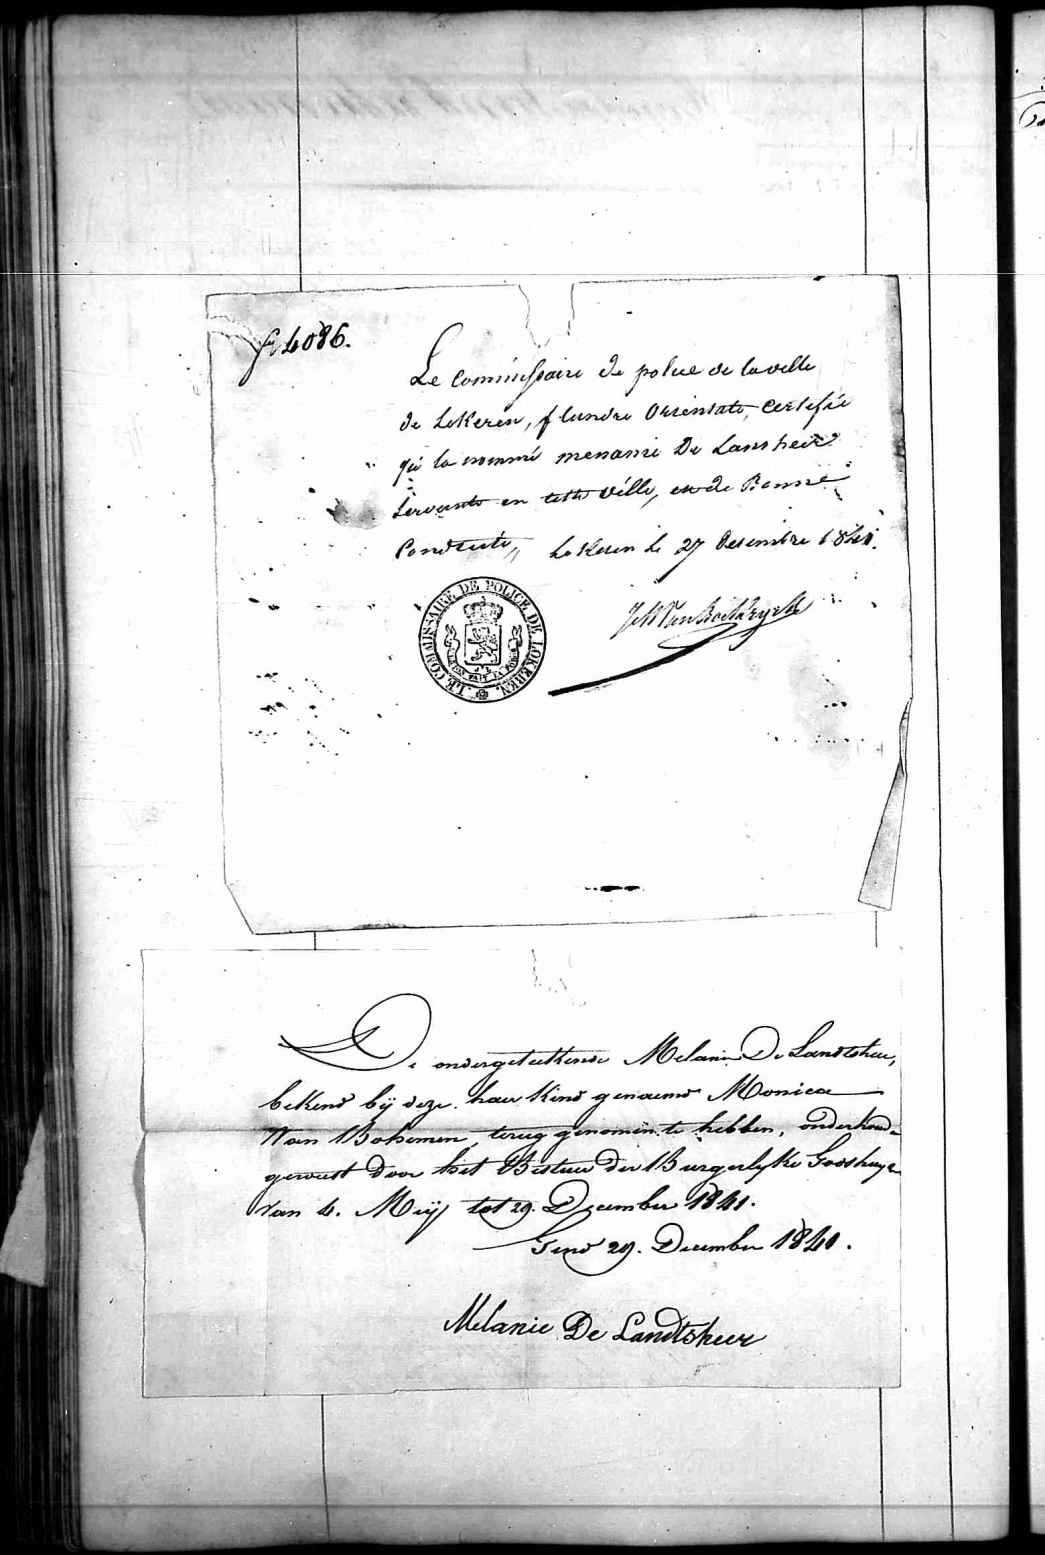 fo 4086.
Le Commissaire de police de la ville
de Lokeren, flandre Orientale, certifie
que la nommé menanie De Lansheer
Servante en cette ville, est de Bonne
Conduite, Lokeren le 27 decembre 1841.
LE COMMISSAIRE DE POLICE DE LOKEREN.
De ondergeteekende Melanie De Landtsheer,
bekend bij deze haer kind genaemd Monica
Van Bohemen, terug genomen te hebben, onderhoud-
geweest door het Bestuur der Burgerlyke Godshuyz-
van 4. Mey tot 29. December 1841.
Gend 29. December 1841.
Melanie De Landtsheer